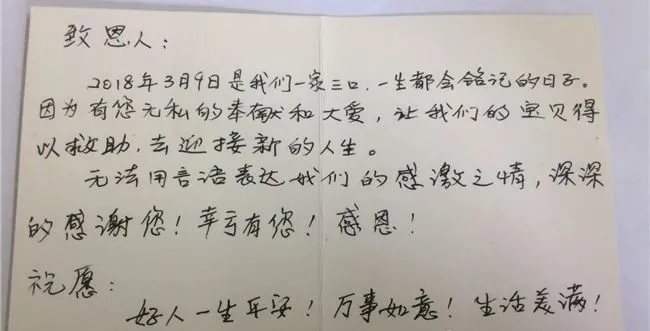 致恩人：
2018年3月9日是我们一家三口，一生都会铭记的日子。
因为有您无私的奉献和大爱，让我们的宝贝得
以救助，去迎接新的人生。
无法用言语表达我们的感激之情，深深
的感谢您！幸亏有您！感恩！
祝愿：
好人一生平安！万事如意！生活美满！